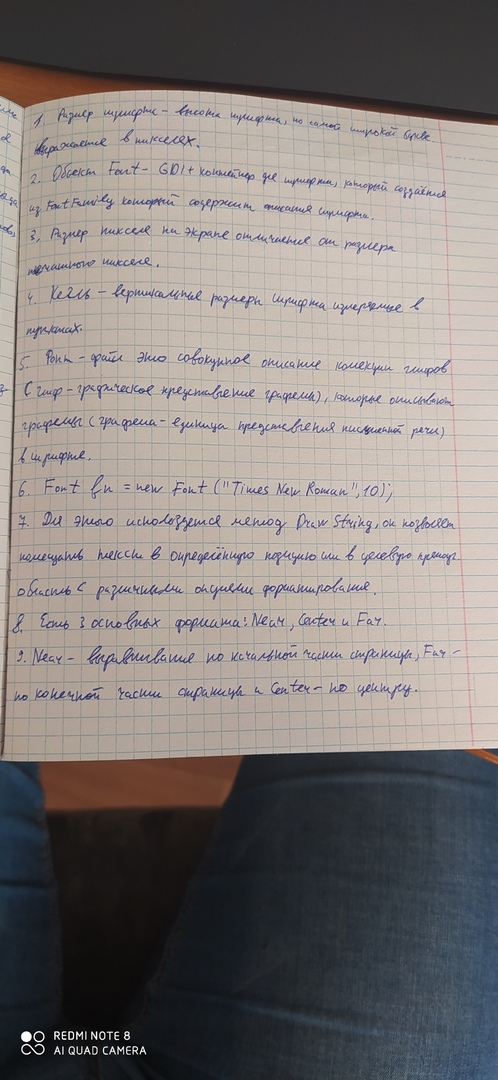 1. Размер шрифта - высота шрифта, по самой широкой букве.
Выражается в пикселях.
2. Объект Font - GDI+ контейнер для шрифта, который создаётся
из FontFamily который содержит описания шрифта.
3. Размер пикселе на экране отличается от размера
печатного пикселе.
4. Кегль - вертикальные размеры шрифта измеряемые в
пунктах.
5. Фонт - файл это совокупное описание колекции глифов
(глиф - графическое представление графемы), которые описывают
графемы (графема - единица представления письменной речи)
в шрифте.
6. Font fn = new Font ("Times New Roman", 10);
7. Для этого используется метод Draw String, он позволяет
помещать текст в определённую позицию или в целевую
область с различными опциями форматирования.
8. Есть 3 основных формата: Near, Center и Far.
9. Near - выравнивание по начальной части страницы, Far -
по конечной части страницы и Center - по центру.
REDMI NOTE 8
AI QUAD CAMERA